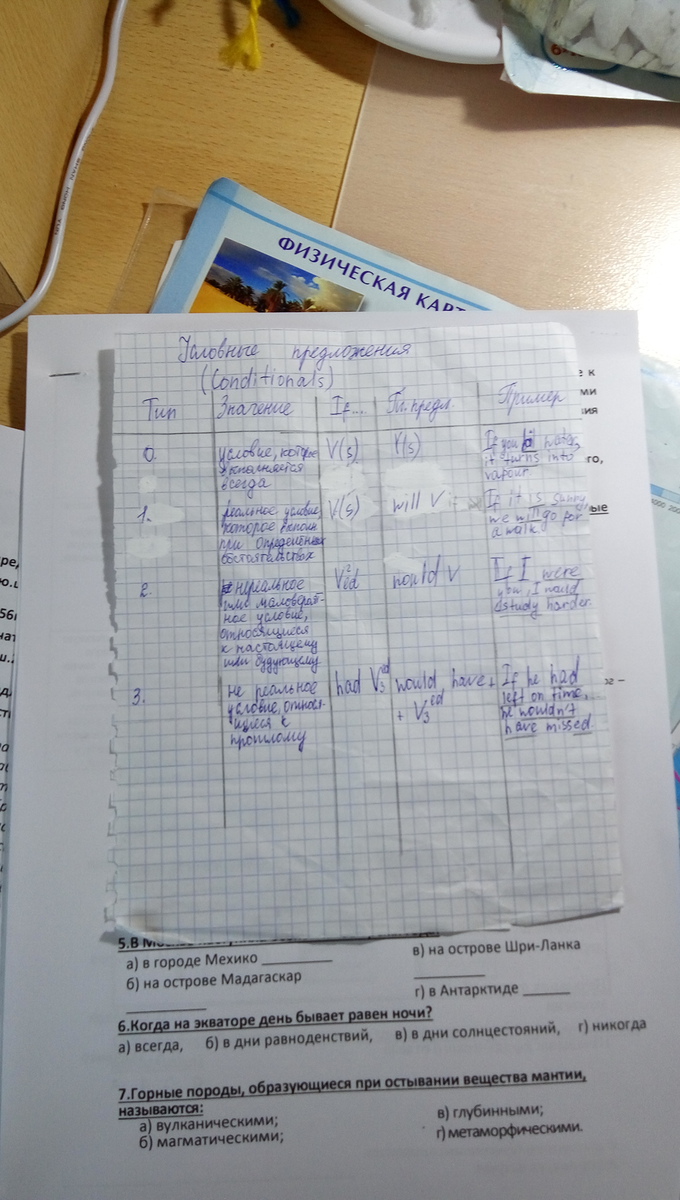 ФИЗИЧЕСКАЯ КАРТ
Условные предложения
(Conditionals)
Тип Значение If... Гл. предл. Пример
0. условие, которое выполняется всегда V(s) V(s) If you water, it turns into vapour
1. реальное условие, которое выполн. при определённых обстоятельствах V(s) will V If it is sunny, we will go for a walk
2. нереальное или маловероят-ное условие, относящиеся к настоящему или будующему V2 ed would V If I were you, I would study harder.
3. не реальное условие, относя-щиеся к прошлому had V3 ed would have + V3 ed If he had left on time, he wouldn't have missed
5.В
а) в городе Мехико в) на острове Шри-Ланка
б) на острове Мадагаскар
г) в Антарктиде
6.Когда на экваторе день бывает равен ночи?
а) всегда, б) в дни равноденствий, в) в дни солнцестояний, г) никогда
7.Горные породы, образующиеся при остывании вещества мантии,
называются:
а) вулканическими; в) глубинными;
б) магматическими; г) метаморфическими.